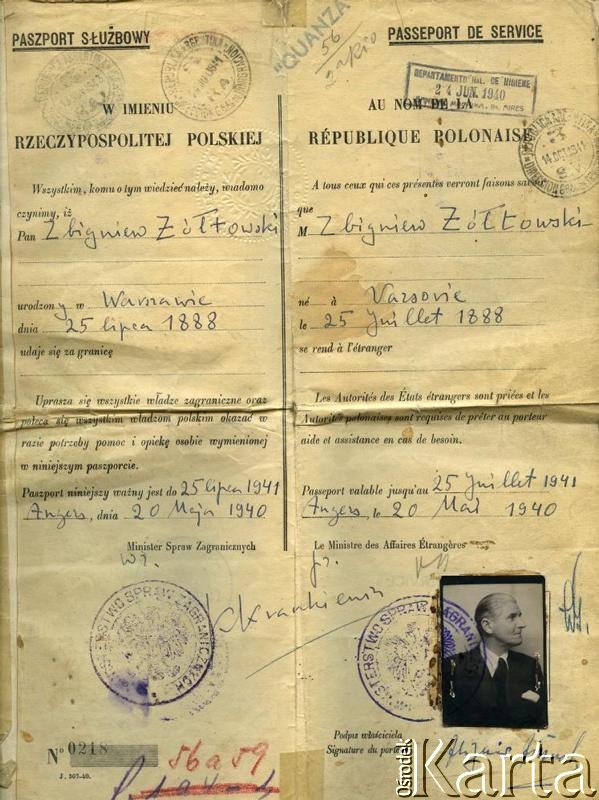 PASZPORT SŁUŻBOWY
W IMIENIU
RZECZYPOSPOLITEJ POLSKIEJ
Wszystkim, komu o tym wiedzieć należy, wiadomo
czynimy, iż
Pan Zbigniew Żółtowski
urodzony w Warszawie
dnia 25 lipca 1888
udaje się za granicę
Uprasza się wszystkie władze zagraniczne oraz
poleca się wszystkim władzom polskim okazać w
razie potrzeby pomoc i opiekę osobie wymienionej
w niniejszym paszporcie.
Paszport niniejszy ważny jest do 25 lipca 1941
Angers, dnia 20 Maja 1940
Minister Spraw Zagranicznych
MINISTERSTWO SPRAW ZAGRANICZNYCH
Nº 0218
J. 307-40.
56a59
"QUANZA"
56
PASSEPORT DE SERVICE
DEPARTAMENTO NAL. DE HIGIENE
24 JUN. 1940
Bs. AIRES
14 OCT 1941
AU NOM DE LA
RÉPUBLIQUE POLONAISE
A tous ceux qui ces présentes verront faisons savoir
que
M Zbigniew Żółtowski
né à Varsovie
le 25 Juillet 1888
se rend à l'étranger
Les Autorités des États étrangers sont priées et les
Autorités polonaises sont requises de prêter au porteur
aide et assistance en cas de besoin.
Passeport valable jusqu'au 25 Juillet 1941
Angers, le 20 Mai 1940
Le Ministre des Affaires Étrangères
MINISTERSTWO SPRAW ZAGRANICZNYCH
Podpis właściciela
Signature du porteur
Ośrodek Karta